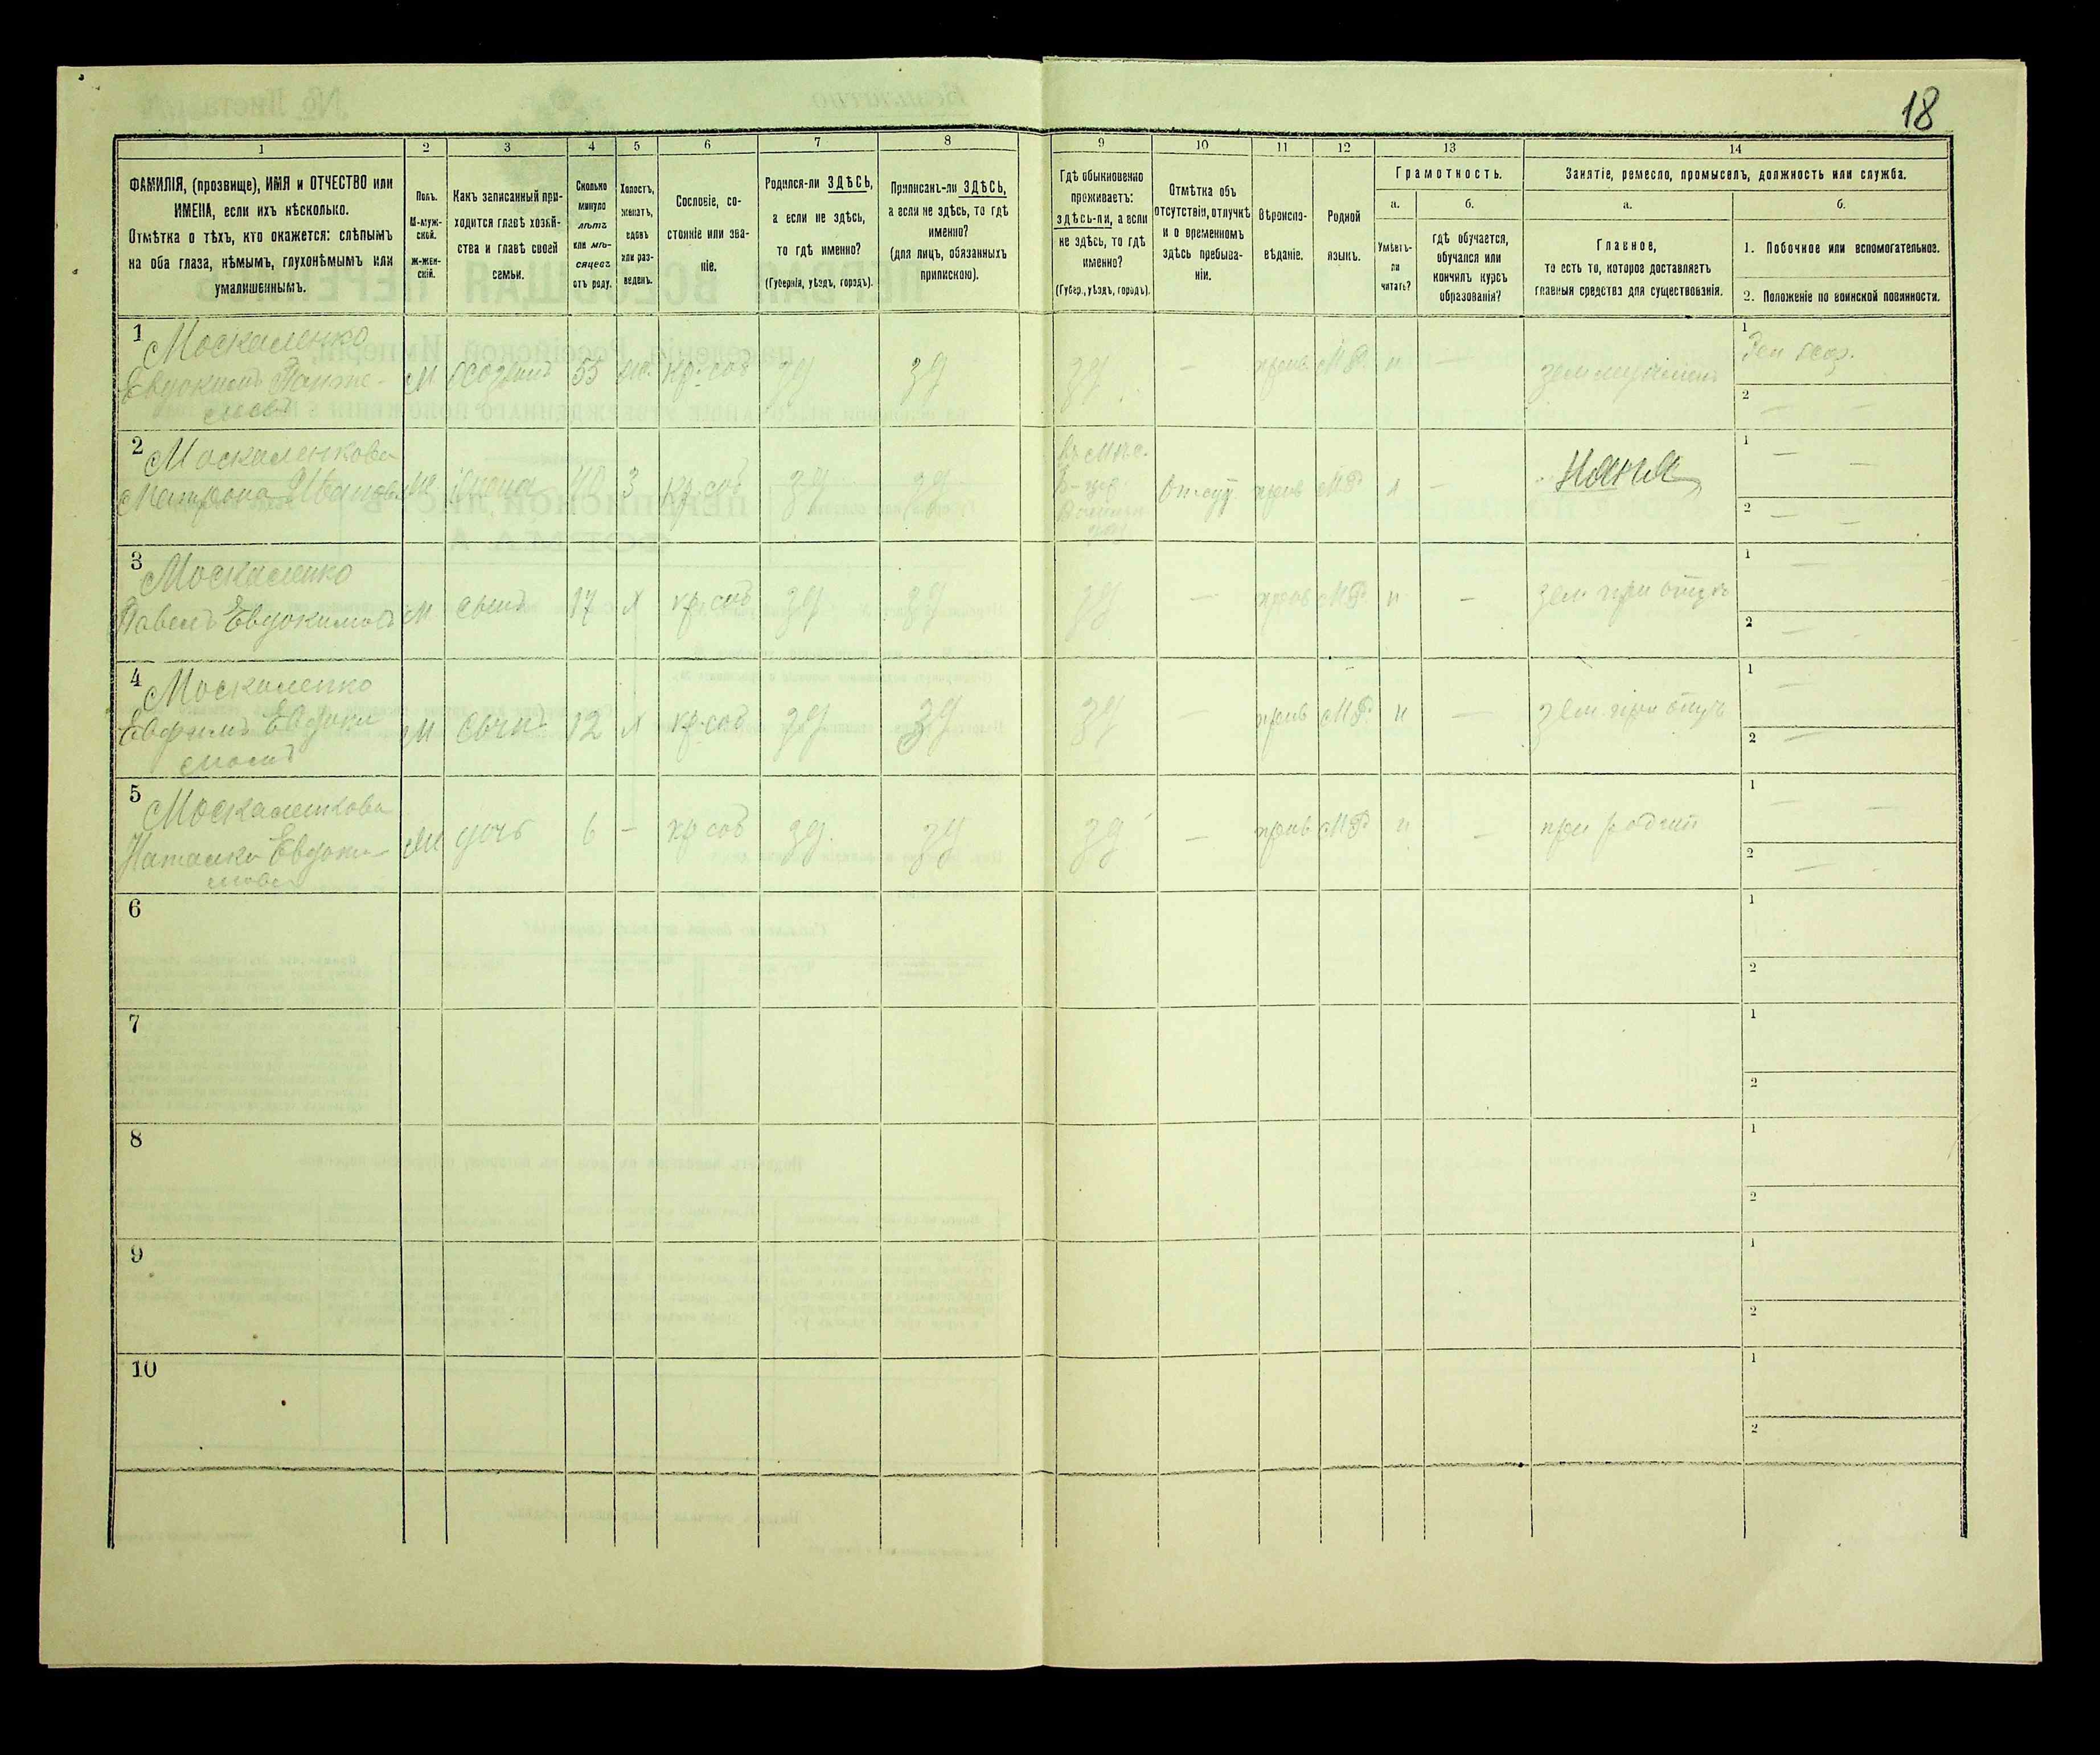 18
1 2 3 4 5 6 7 8 9 10 11 12 13 14
ФАМИЛІЯ, (прозвище), ИМЯ и ОТЧЕСТВО или
ИМЕНА, если ихъ нѣсколько.
Отмѣтка о тѣхъ, кто окажется: слѣпымъ
на оба глаза, нѣмымъ, глухонѣмымъ или
умалишеннымъ.
Полъ.
М-муж-
ской.
Ж-жен-
скій.
Какъ записанный при-
ходится главѣ хозяй-
ства и главѣ своей
семьи.
Сколько
минуло
лѣтъ
или мѣ-
сяцевъ
отъ роду.
Холостъ,
женатъ,
вдовъ
или раз-
веденъ.
Сословіе, со-
стояніе или зва-
ніе.
Родился-ли ЗДѢСЬ,
а если не здѣсь,
то гдѣ именно?
(Губернія, уѣздъ, городъ).
Приписанъ-ли ЗДѢСЬ,
а если не здѣсь, то гдѣ
именно?
(для лицъ, обязанныхъ
припискою).
Гдѣ обыкновенно
проживаетъ:
здѣсь-ли, а если
не здѣсь, то гдѣ
именно?
(Губер., уѣздъ, городъ).
Отмѣтка объ
отсутствіи, отлучкѣ
и о временномъ
здѣсь пребыва-
ніи.
Вѣроиспо-
вѣданіе.
Родной
языкъ.
Грамотность.
а.
Умѣетъ-
ли
читать?
б.
гдѣ обучается,
обучался или
кончилъ курсъ
образованія?
Занятіе, ремесло, промыселъ, должность или служба.
а.
Главное,
то есть то, которое доставляетъ
главныя средства для существованія.
б.
1. Побочное или вспомогательное.
2. Положеніе по воинской повинности.
1 Москаленко
Евдокимъ
м 55 кр. соб зд зд зд — прав М.Р. н —
1
2 — —
2 Москаленкова
Матрона Иванова
жена 40 З кр. соб зд зд
отсут. прав М.Р. н — няня
1 — —
2 — —
3 Москаленко
Павелъ Евдокимовъ
м сынъ 17 х кр. соб зд зд зд — прав М.Р. н — зем. при отцѣ
1 —
2 —
4 Москаленко
Ефимъ Евдоки
мовъ
м сынъ 12 х кр. соб зд зд зд — прав М.Р. н — зем. при отцѣ
1 —
2 —
5 Москаленкова
Наталка Евдоки-
мова
дочь 6 — кр соб зд. зд зд — прав М.Р. н — при родит
1 — —
2 —
6 1
2
7 1
2
8 1
2
9 1
2
10 1
2